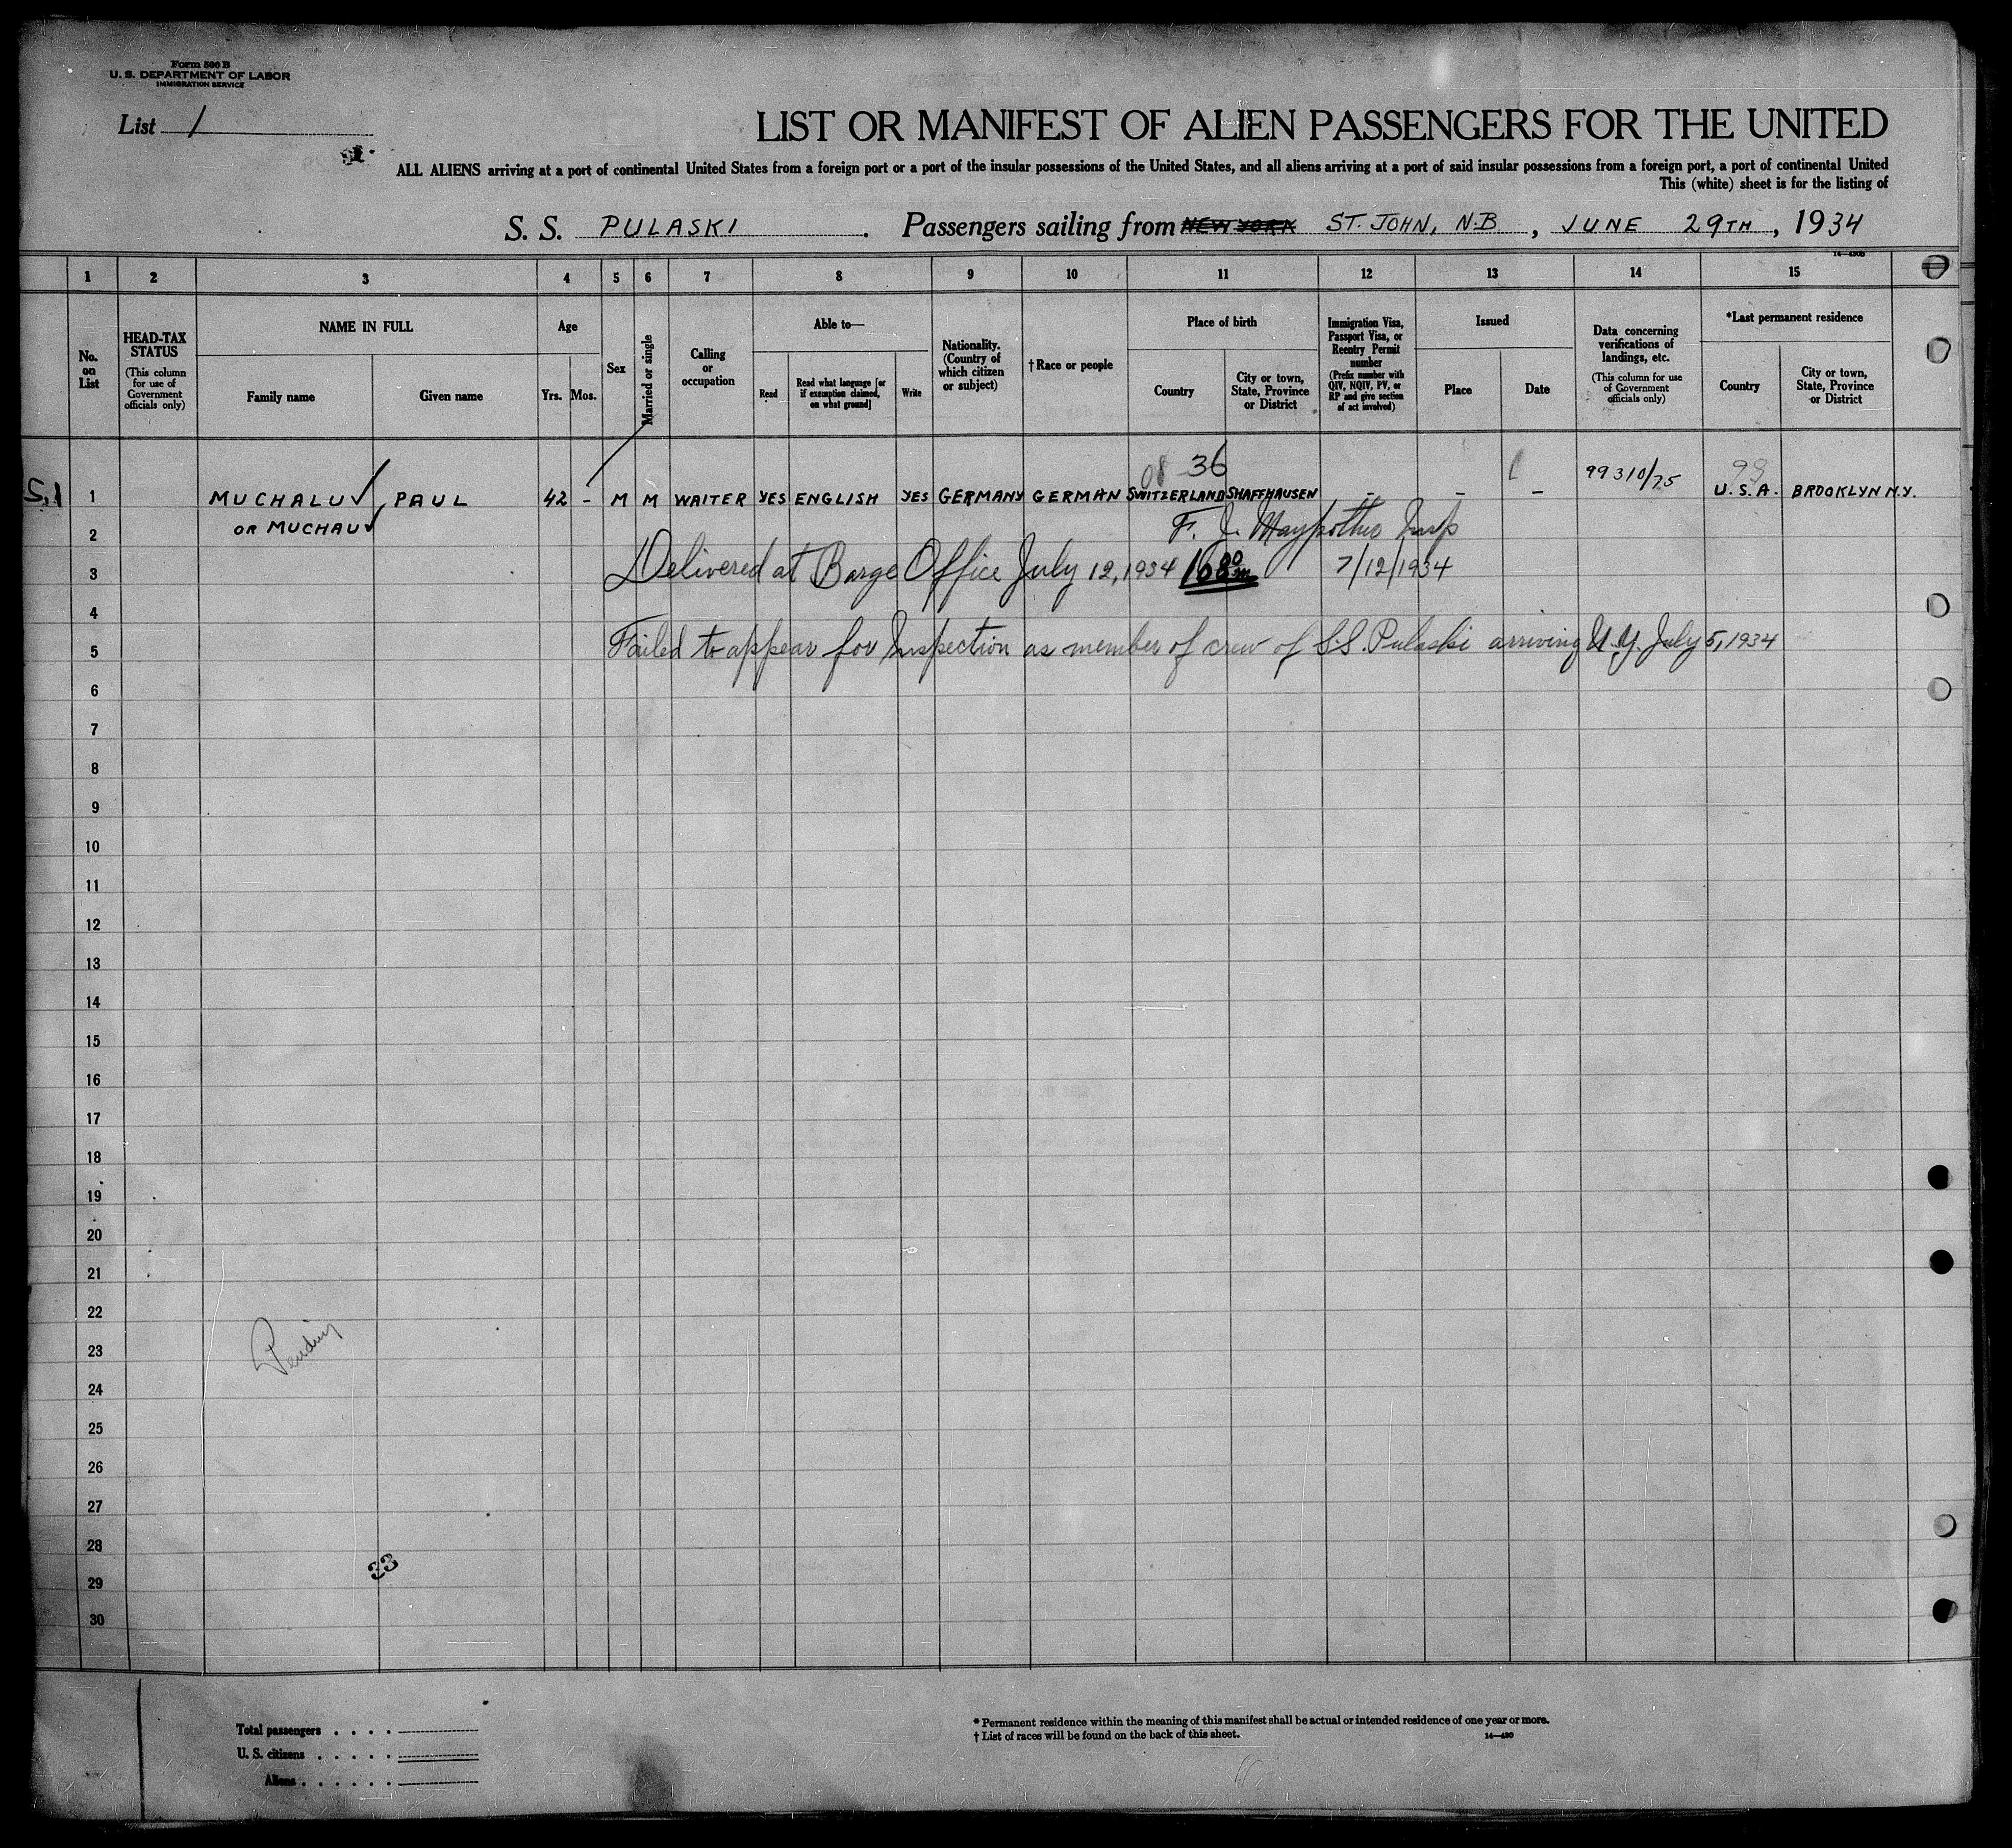 Form 500 B
U. S. DEPARTMENT OF LABOR
IMMIGRATION SERVICE
List 1
LIST OR MANIFEST OF ALIEN PASSENGERS FOR THE UNITED
ALL ALIENS arriving at a port of continental United States from a foreign port or a port of the insular possessions of the United States, and all aliens arriving at a port of said insular possessions from a foreign port, a port of continental United
This (white) sheet is for the listing of
S. S. PULASKI. Passengers sailing from NEW YORK ST. JOHN, N.B, JUNE 29TH, 1934
1 2 3 4 5 6 7 8 9 10 11 12 13 14 15
No. on List
HEAD-TAX STATUS
(This column for use of Government officials only)
NAME IN FULL
Family name
Given name
Age
Yrs. Mos.
Sex
Married or single
Calling or occupation
Able to—
Read
Read what language [or if exemption claimed, on what ground]
Write
Nationality. (Country of which citizen or subject)
† Race or people
Place of birth
Country
City or town, State, Province or District
Immigration Visa, Passport Visa, or Reentry Permit number
(Prefix number with QIV, NQIV, PV, or RP and give section of act involved)
Issued
Place
Date
Data concerning verifications of landings, etc.
(This column for use of Government officials only)
*Last permanent residence
Country
City or town, State, Province or District
08 36
99310/75
99
1 MUCHALU, PAUL 42 - M M WAITER YES ENGLISH YES GERMANY GERMAN SWITZERLAND SHAFFHAUSEN - - - U.S.A. BROOKLYN N.Y.
OR MUCHAU
2 F. J. Insp
3 Delivered at Barge Office July 12, 1934 7/12/1934
4
5 Failed to appear for Inspection as member of crew of S.S. Pulaski arriving N.Y. July 5, 1934
6
7
8
9
10
11
12
13
14
15
16
17
18
19
20
21
22
23 Pending
24
25
26
27
28
33
29
30
Total passengers . . . .
U. S. citizens . . . . .
Aliens . . . . . .
* Permanent residence within the meaning of this manifest shall be actual or intended residence of one year or more.
† List of races will be found on the back of this sheet.
14—430